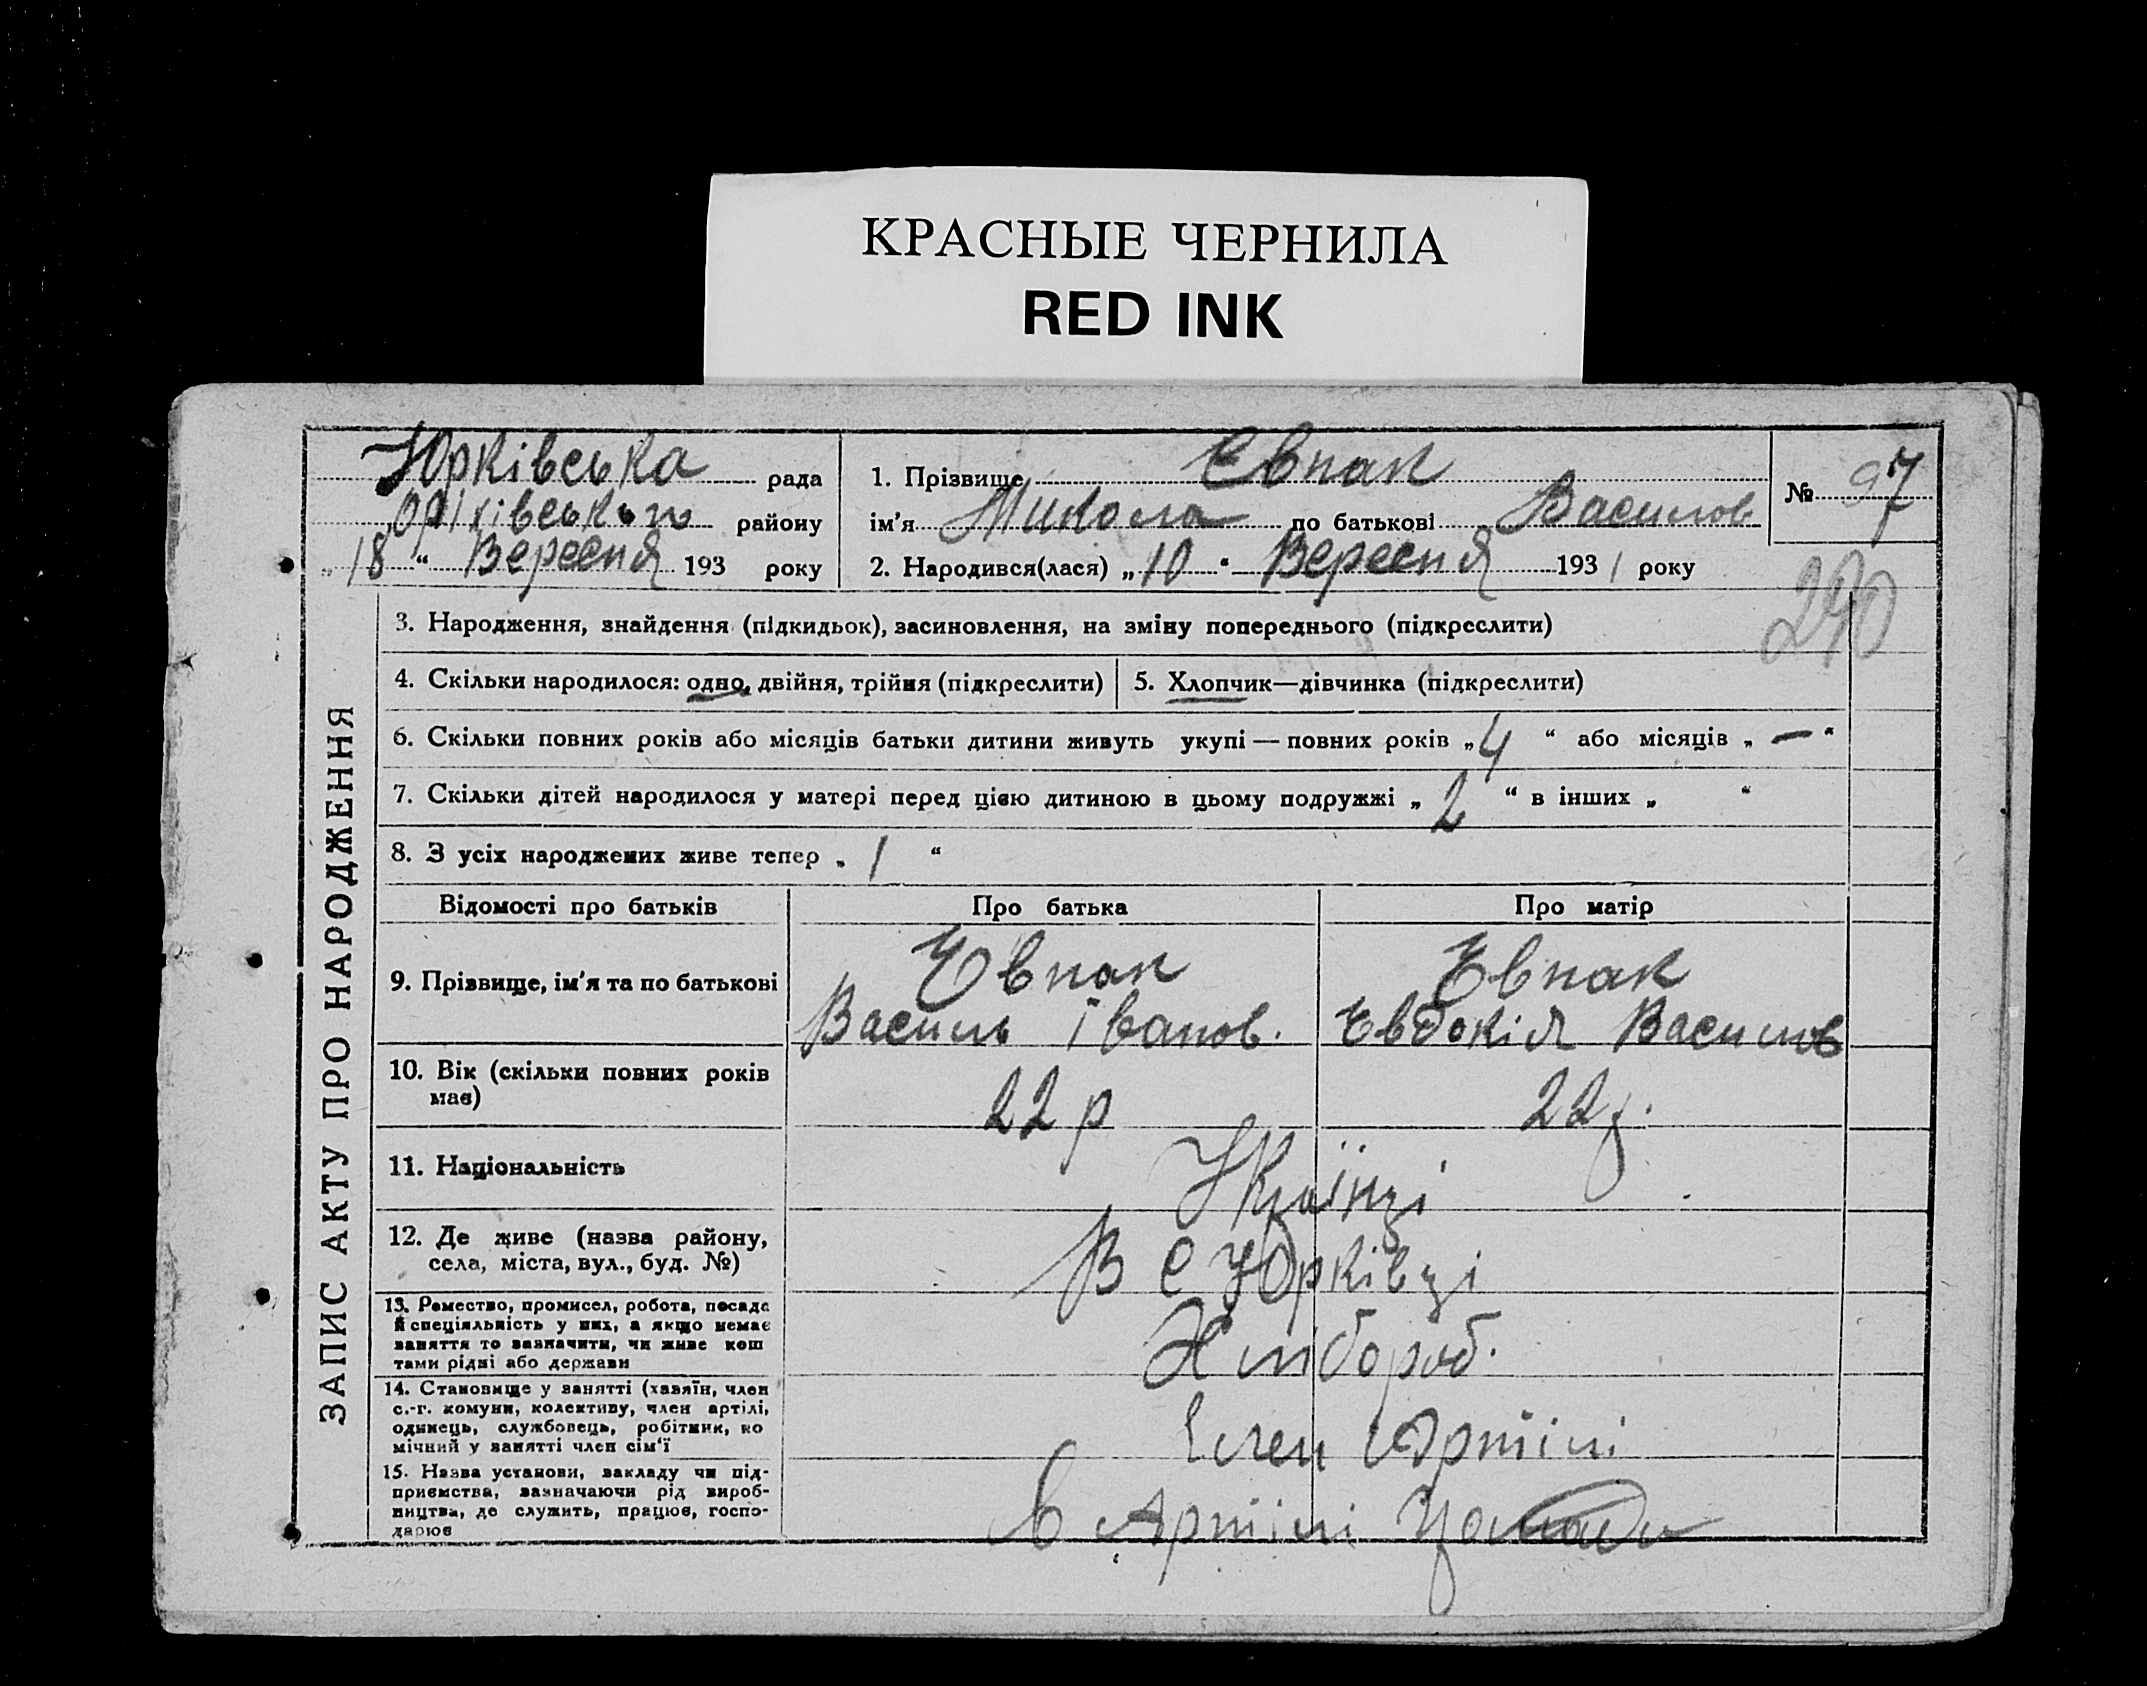 КРАСНЫЕ ЧЕРНИЛА
RED INK
Юрківська рада
Оріхівського району
„18“ Вересня 193 року
1. Прізвище Євпак
ім'я Микола по батькові Василов
2. Народився(лася) „10“ Вересня 1931 року
№ 97
290
ЗАПИС АКТУ ПРО НАРОДЖЕННЯ
3. Народження, знайдення (підкидьок), засиновлення, на зміну попереднього (підкреслити)
4. Скільки народилося: одно, двійня, трійня (підкреслити)
5. Хлопчик—дівчинка (підкреслити)
6. Скільки повних років або місяців батьки дитини живуть укупі — повних років „4“ або місяців „—“
7. Скільки дітей народилося у матері перед цією дитиною в цьому подружжі „2“ в інших „ “
8. З усіх народжених живе тепер „1“
Відомості про батьків
Про батька
Про матір
9. Прізвище, ім'я та по батькові
Євпак
Василь Іванов.
Євпак
Євдокія Василов
10. Вік (скільки повних років
має)
22 р
22 р.
11. Національність
Українці
12. Де живе (назва району,
села, міста, вул., буд. №)
В с Юрківці
13. Ремество, промисел, робота, посада
й спеціяльність у них, а якщо немає
заняття то зазначити, чи живе кош
тами рідні або держави
Хлібороб.
14. Становище у занятті (хазяїн, член
с.-г. комуни, колективу, член артілі,
одинець, службовець, робітник, по
мічний у занятті член сім'ї
Член Артілі
15. Назва установи, закладу чи під-
приємства, зазначаючи рід вироб-
ництва, де служить, працює, госпо-
дарює
в Артілі